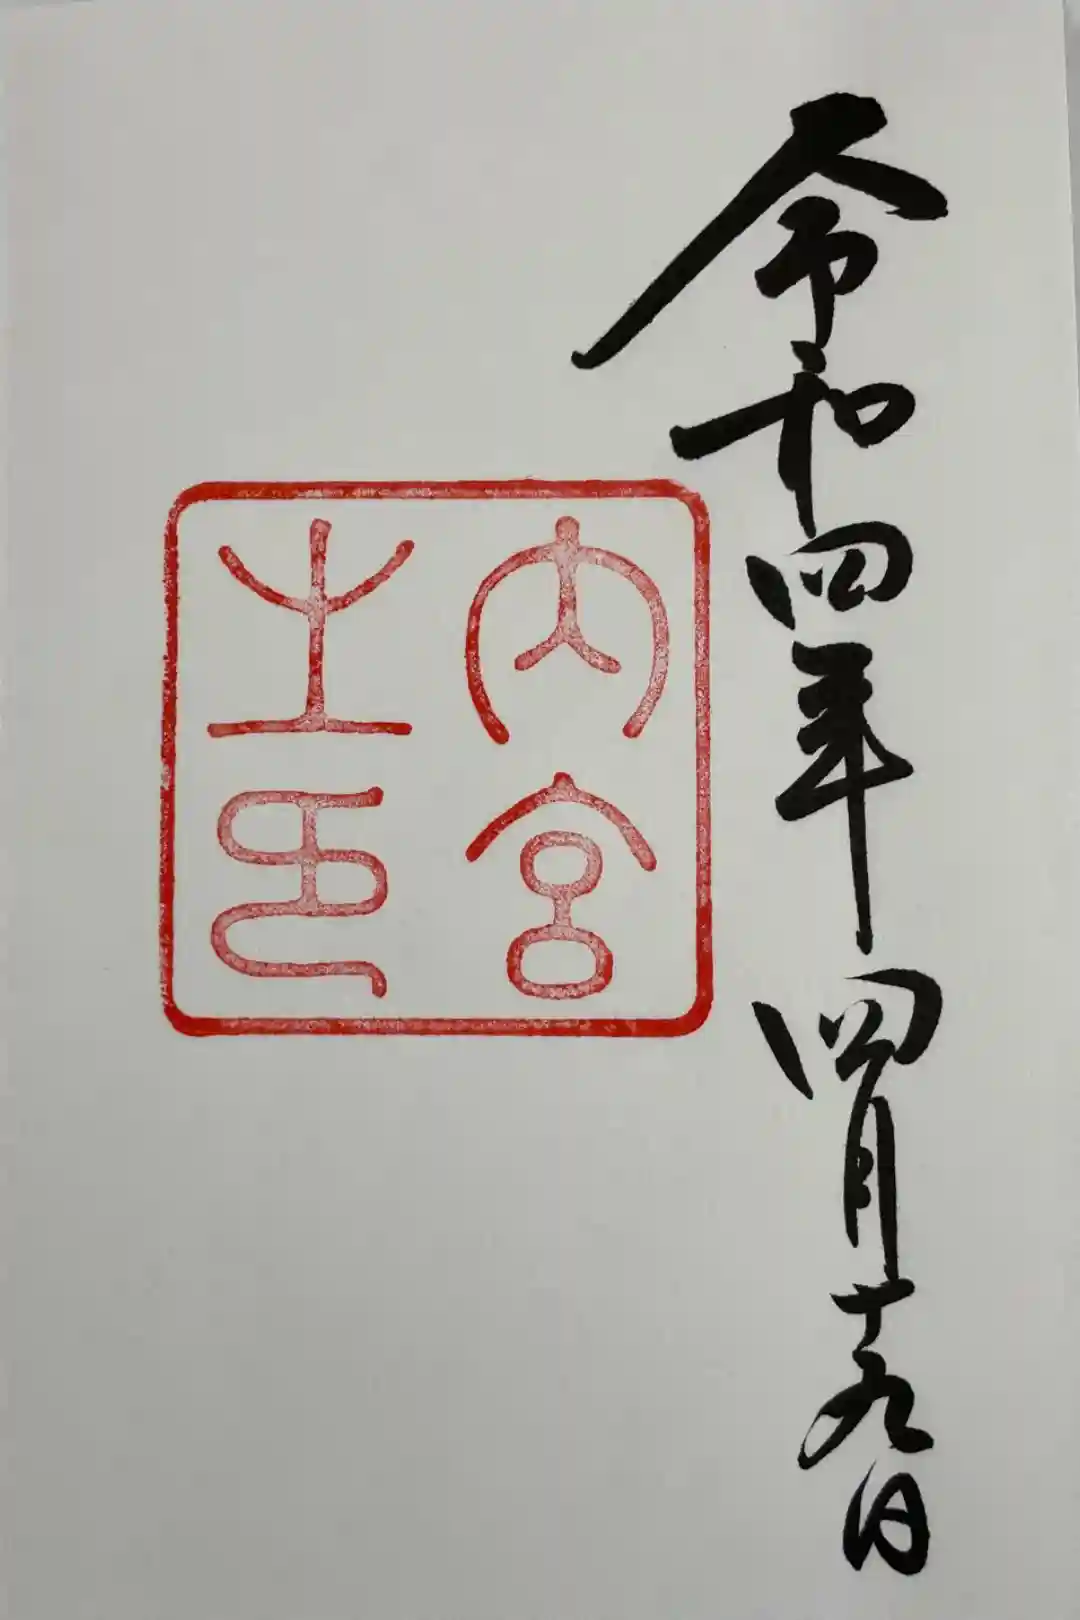 令和四年四月十九日
内宮
之印